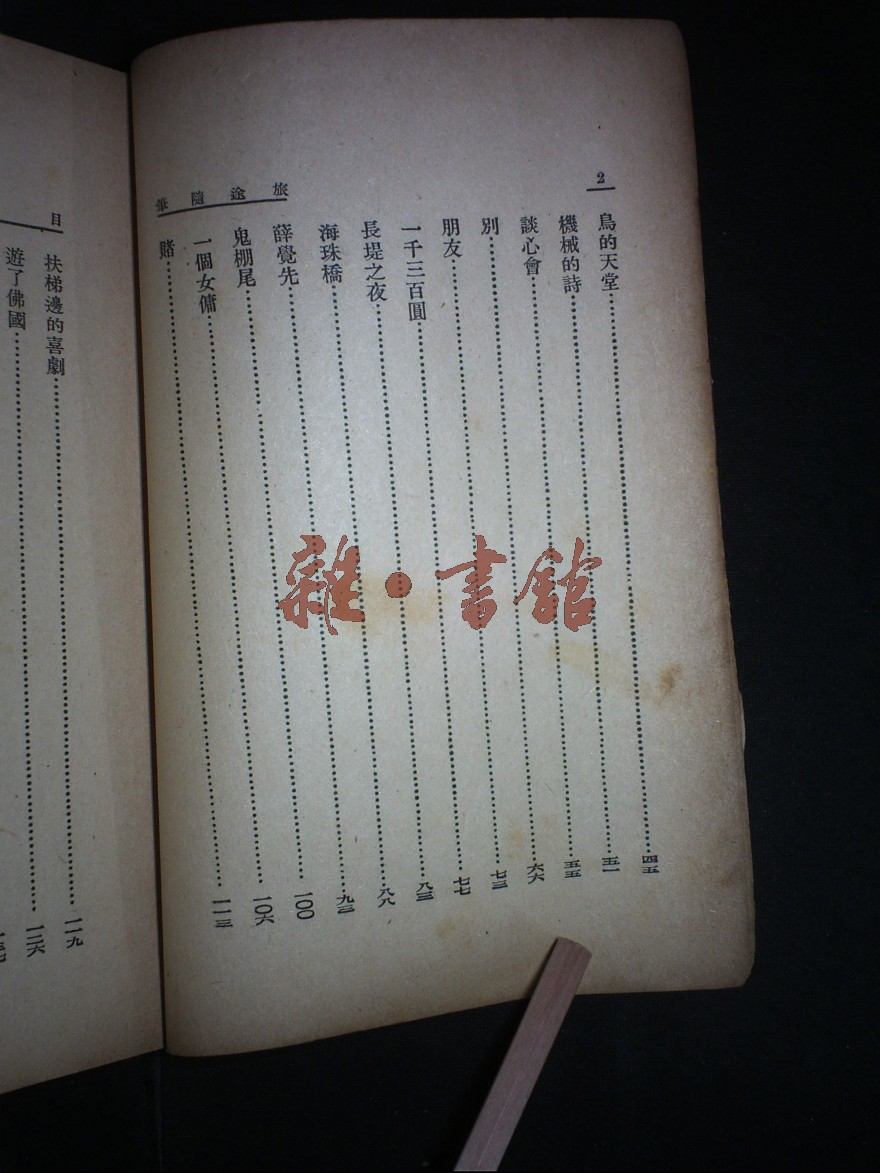 2
旅途隨筆
鳥的天堂……四五
機械的詩……五一
談心會……五五
別……六六
朋友……七三
一千三百圓……七七
長堤之夜……八三
海珠橋……八八
薛覺先……九三
鬼棚尾……一〇〇
一個女傭……一〇六
賭……一一三
目
扶梯邊的喜劇……一一九
遊了佛國……一二六
雜·書館